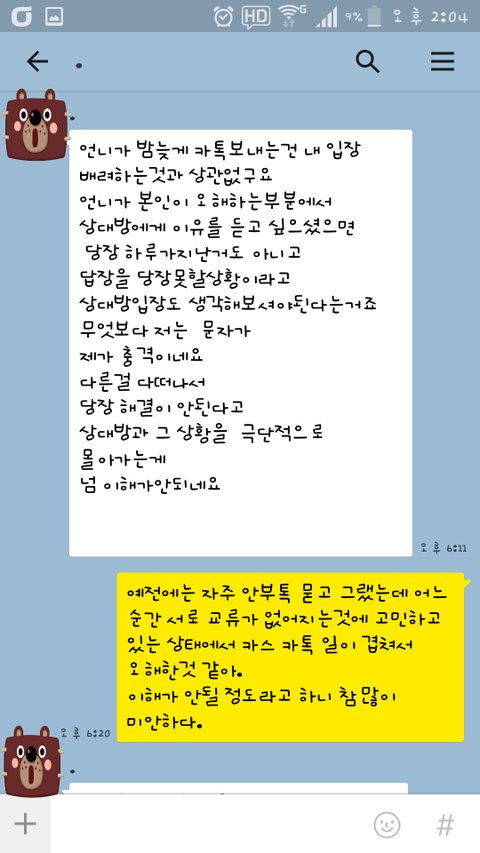 HD
G
9% 오후 2:04
.
.
언니가 밤늦게 카톡보내는건 내 입장
배려하는것과 상관없구요
언니가 본인이 오해하는부분에서
상대방에게 이유를 듣고 싶으셨으면
당장 하루가지난거도 아니고
답장을 당장못할상황이라고
상대방입장도 생각해보셔야된다는거죠
무엇보다 저는 문자가
제가 충격이네요
다른걸 다떠나서
당장 해결이 안된다고
상대방과 그 상황을 극단적으로
몰아가는게
넘 이해가안되네요
오후 6:11
예전에는 자주 안부톡 묻고 그랬는데 어느
순간 서로 교류가 없어지는것에 고민하고
있는 상태에서 카스 카톡 일이 겹쳐서
오해한것 같아.
이해가 안될 정도라고 하니 참 많이
미안하다.
오후 6:20
.
+
#